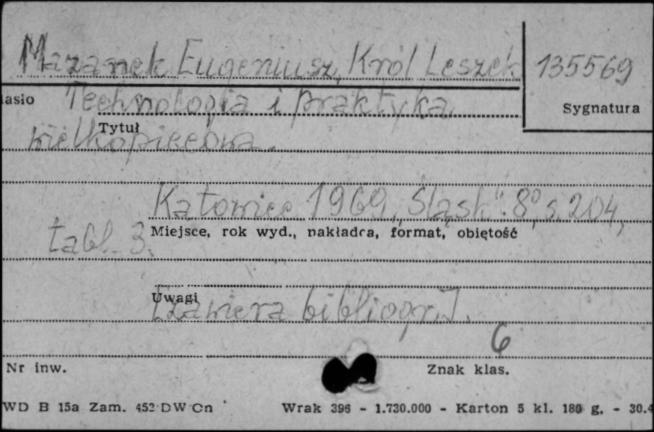 Mazanek Eugeniusz, Król Leszek 135569
asło Technologia i praktyka Sygnatura
Tytuł
wielkopiecowa.
Katowice 1969 „Śląsk". 8°, s. 204,
tabl. 3. Miejsce, rok wyd., nakładca, format, objętość
Uwagi
[Zawiera bibliogr.].
6
Nr inw. Znak klas.
WD B 15a Zam. 452 DW Cn Wrak 396 - 1.730.000 - Karton 5 kl. 180 g. - 30.4